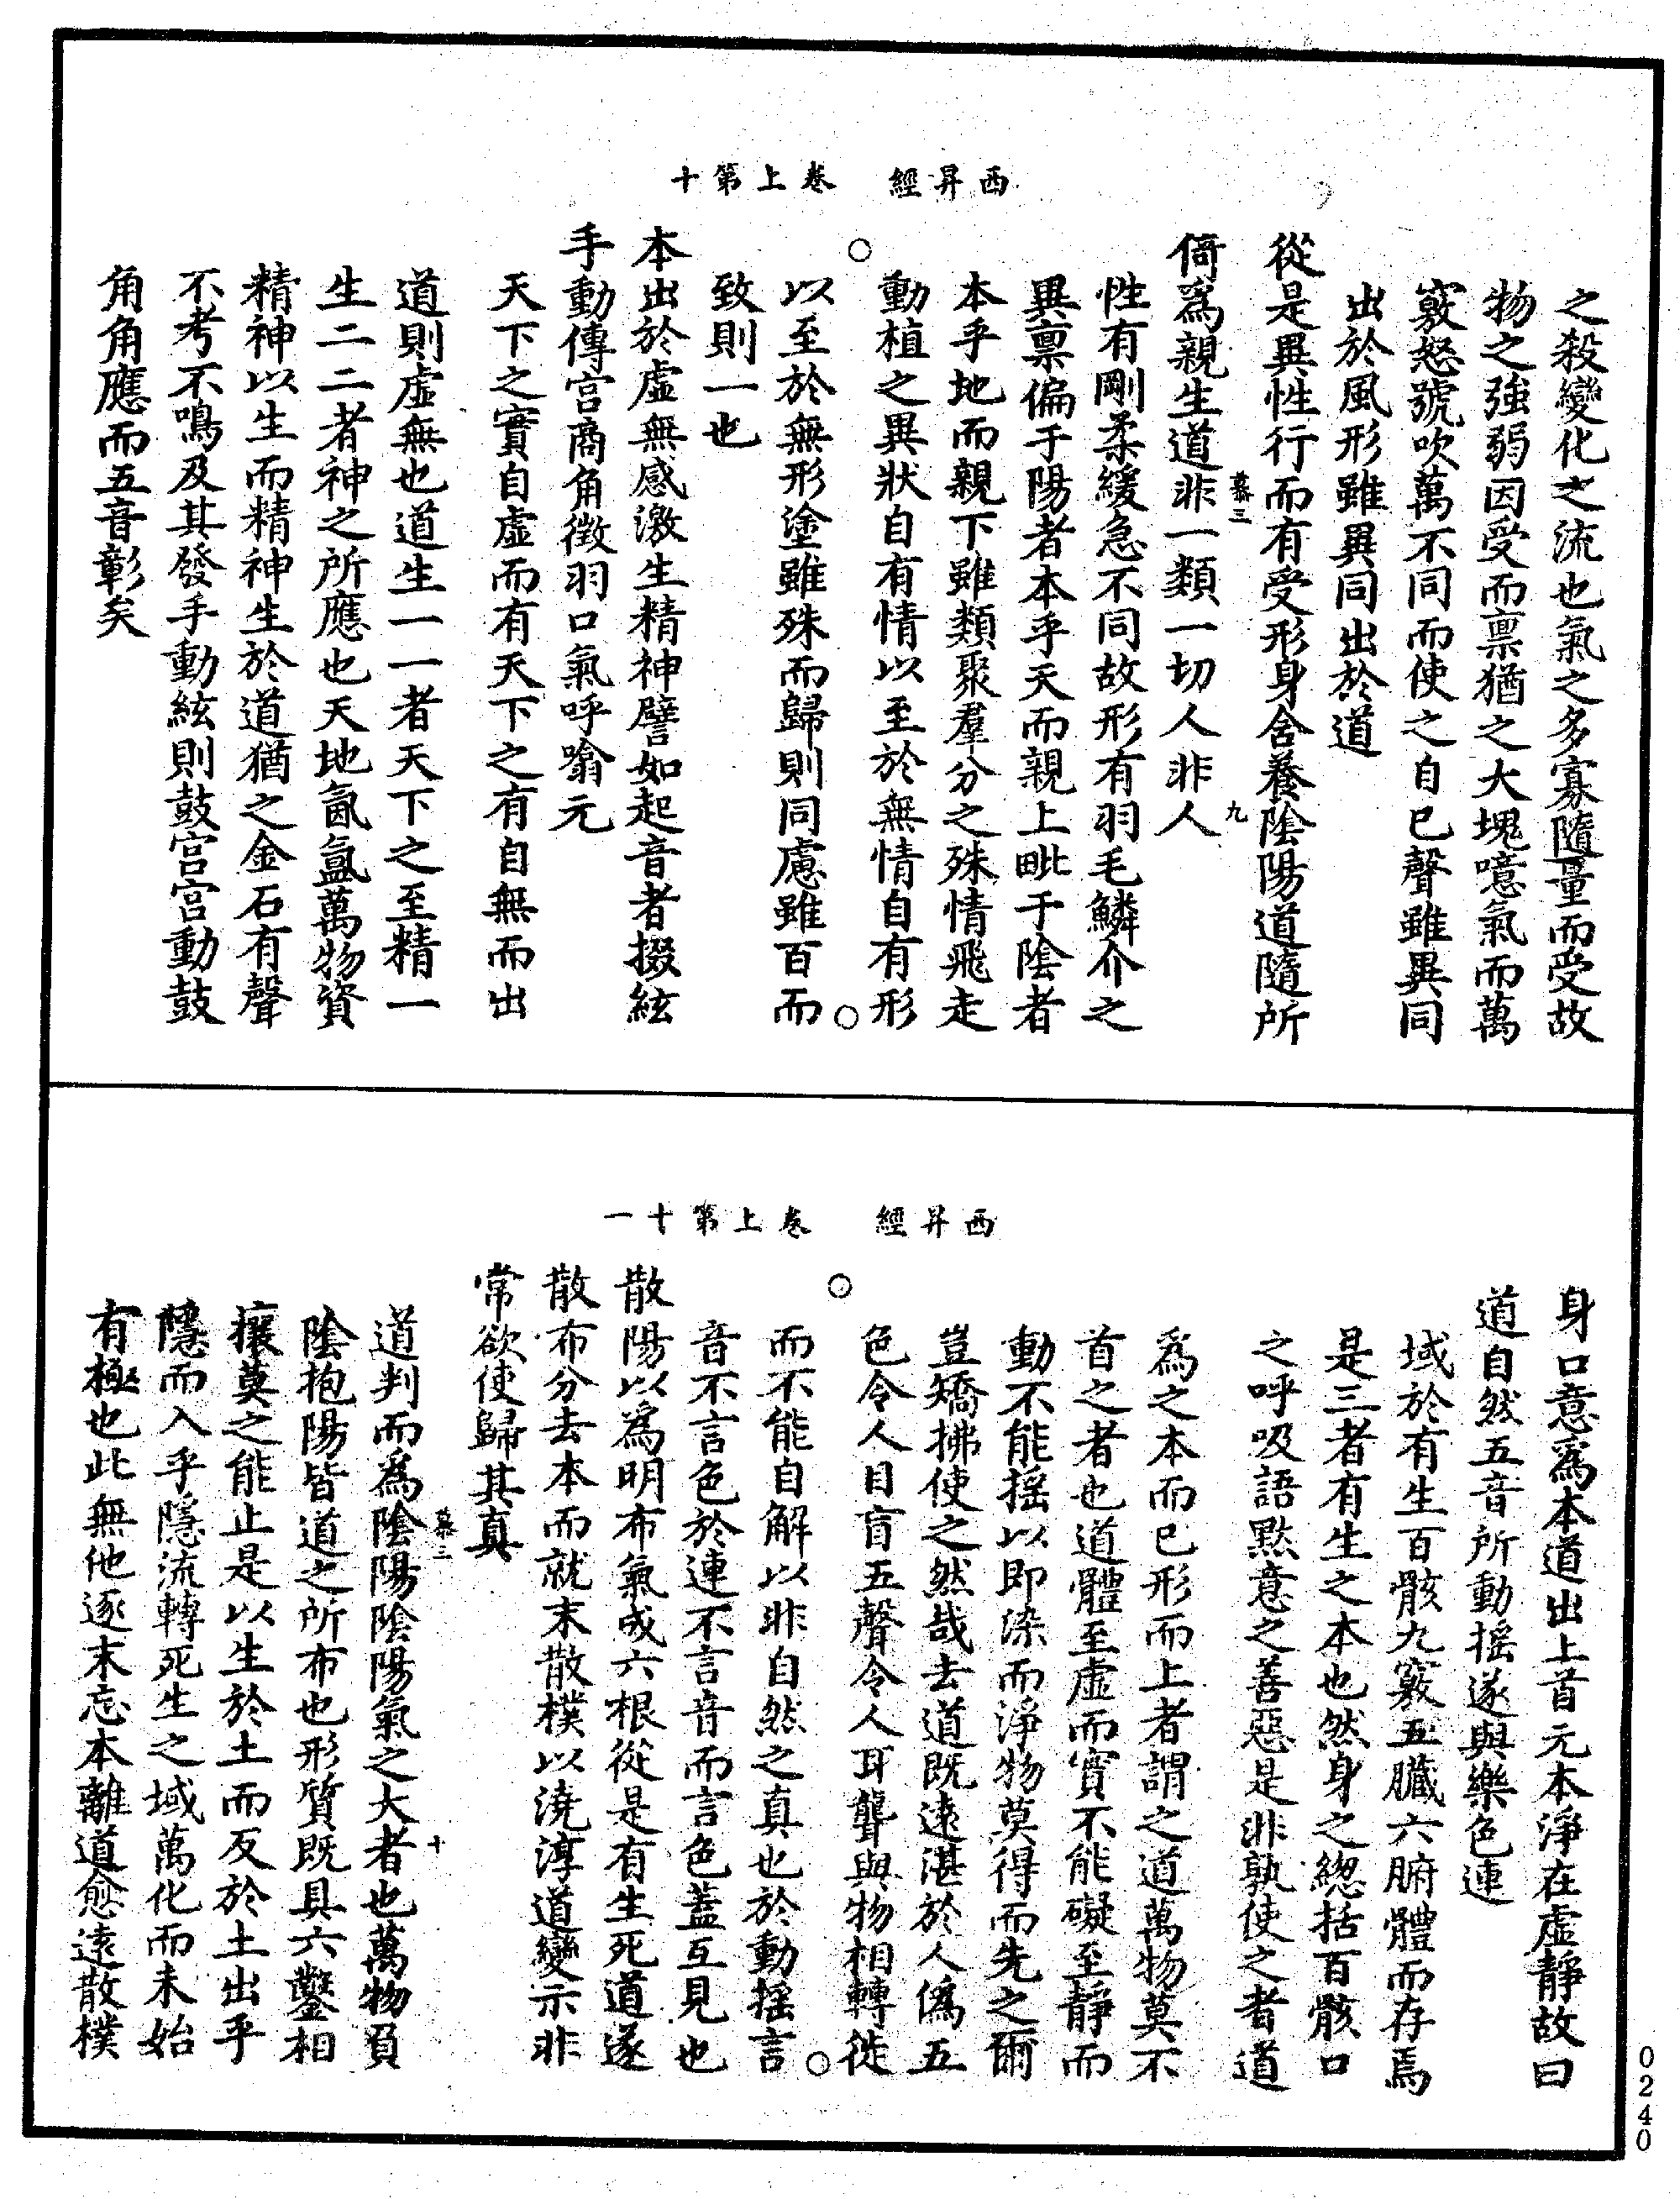 西昇經　卷上第十
之殺變化之流也氣之多寡隨量而受故
物之強弱因受而禀猶之大塊噫氣而萬
竅怒號吹萬不同而使之自已聲雖異同
出於風形雖異同出於道
從是異性行而有受形身舍養陰陽道隨所
慕三　九
倚為親生道非一類一切人非人
性有剛柔緩急不同故形有羽毛鱗介之
異禀偏于陽者本乎天而親上毗于陰者
本乎地而親下雖類聚羣分之殊情飛走
動植之異狀自有情以至於無情自有形
○　○
以至於無形塗雖殊而歸則同慮雖百而
致則一也
本出於虛無感激生精神譬如起音者掇絃
手動傳宮商角徵羽口氣呼噏元
天下之實自虛而有天下之有自無而出
道則虛無也道生一一者天下之至精一
生二二者神之所應也天地氤氳萬物資
精神以生而精神生於道猶之金石有聲
不考不鳴及其發手動絃則鼓宮宮動鼓
角角應而五音彰矣
西昇經　卷上第十一
身口意為本道出上首元本淨在虛靜故曰
道自然五音所動搖遂與樂色連
域於有生百骸九竅五臟六腑體而存焉
是三者有生之本也然身之緫括百骸口
之呼吸語默意之善惡是非孰使之者道
為之本而已形而上者謂之道萬物莫不
首之者也道體至虛而實不能礙至靜而
動不能搖以即染而淨物莫得而先之爾
豈矯拂使之然哉去道既遠湛於人偽五
色令人目盲五聲令人耳聾與物相轉徙
○　○
而不能自解以非自然之真也於動搖言
音不言色於連不言音而言色蓋互見也
散陽以為明布氣成六根從是有生死道遂
散布分去本而就末散樸以澆淳道變示非
常欲使歸其真
慕三　十
道判而為陰陽陰陽氣之大者也萬物負
陰抱陽皆道之所布也形質既具六鑿相
攘莫之能止是以生於土而反於土出乎
隱而入乎隱流轉死生之域萬化而未始
有極也此無他逐末忘本離道愈遠散樸
0240